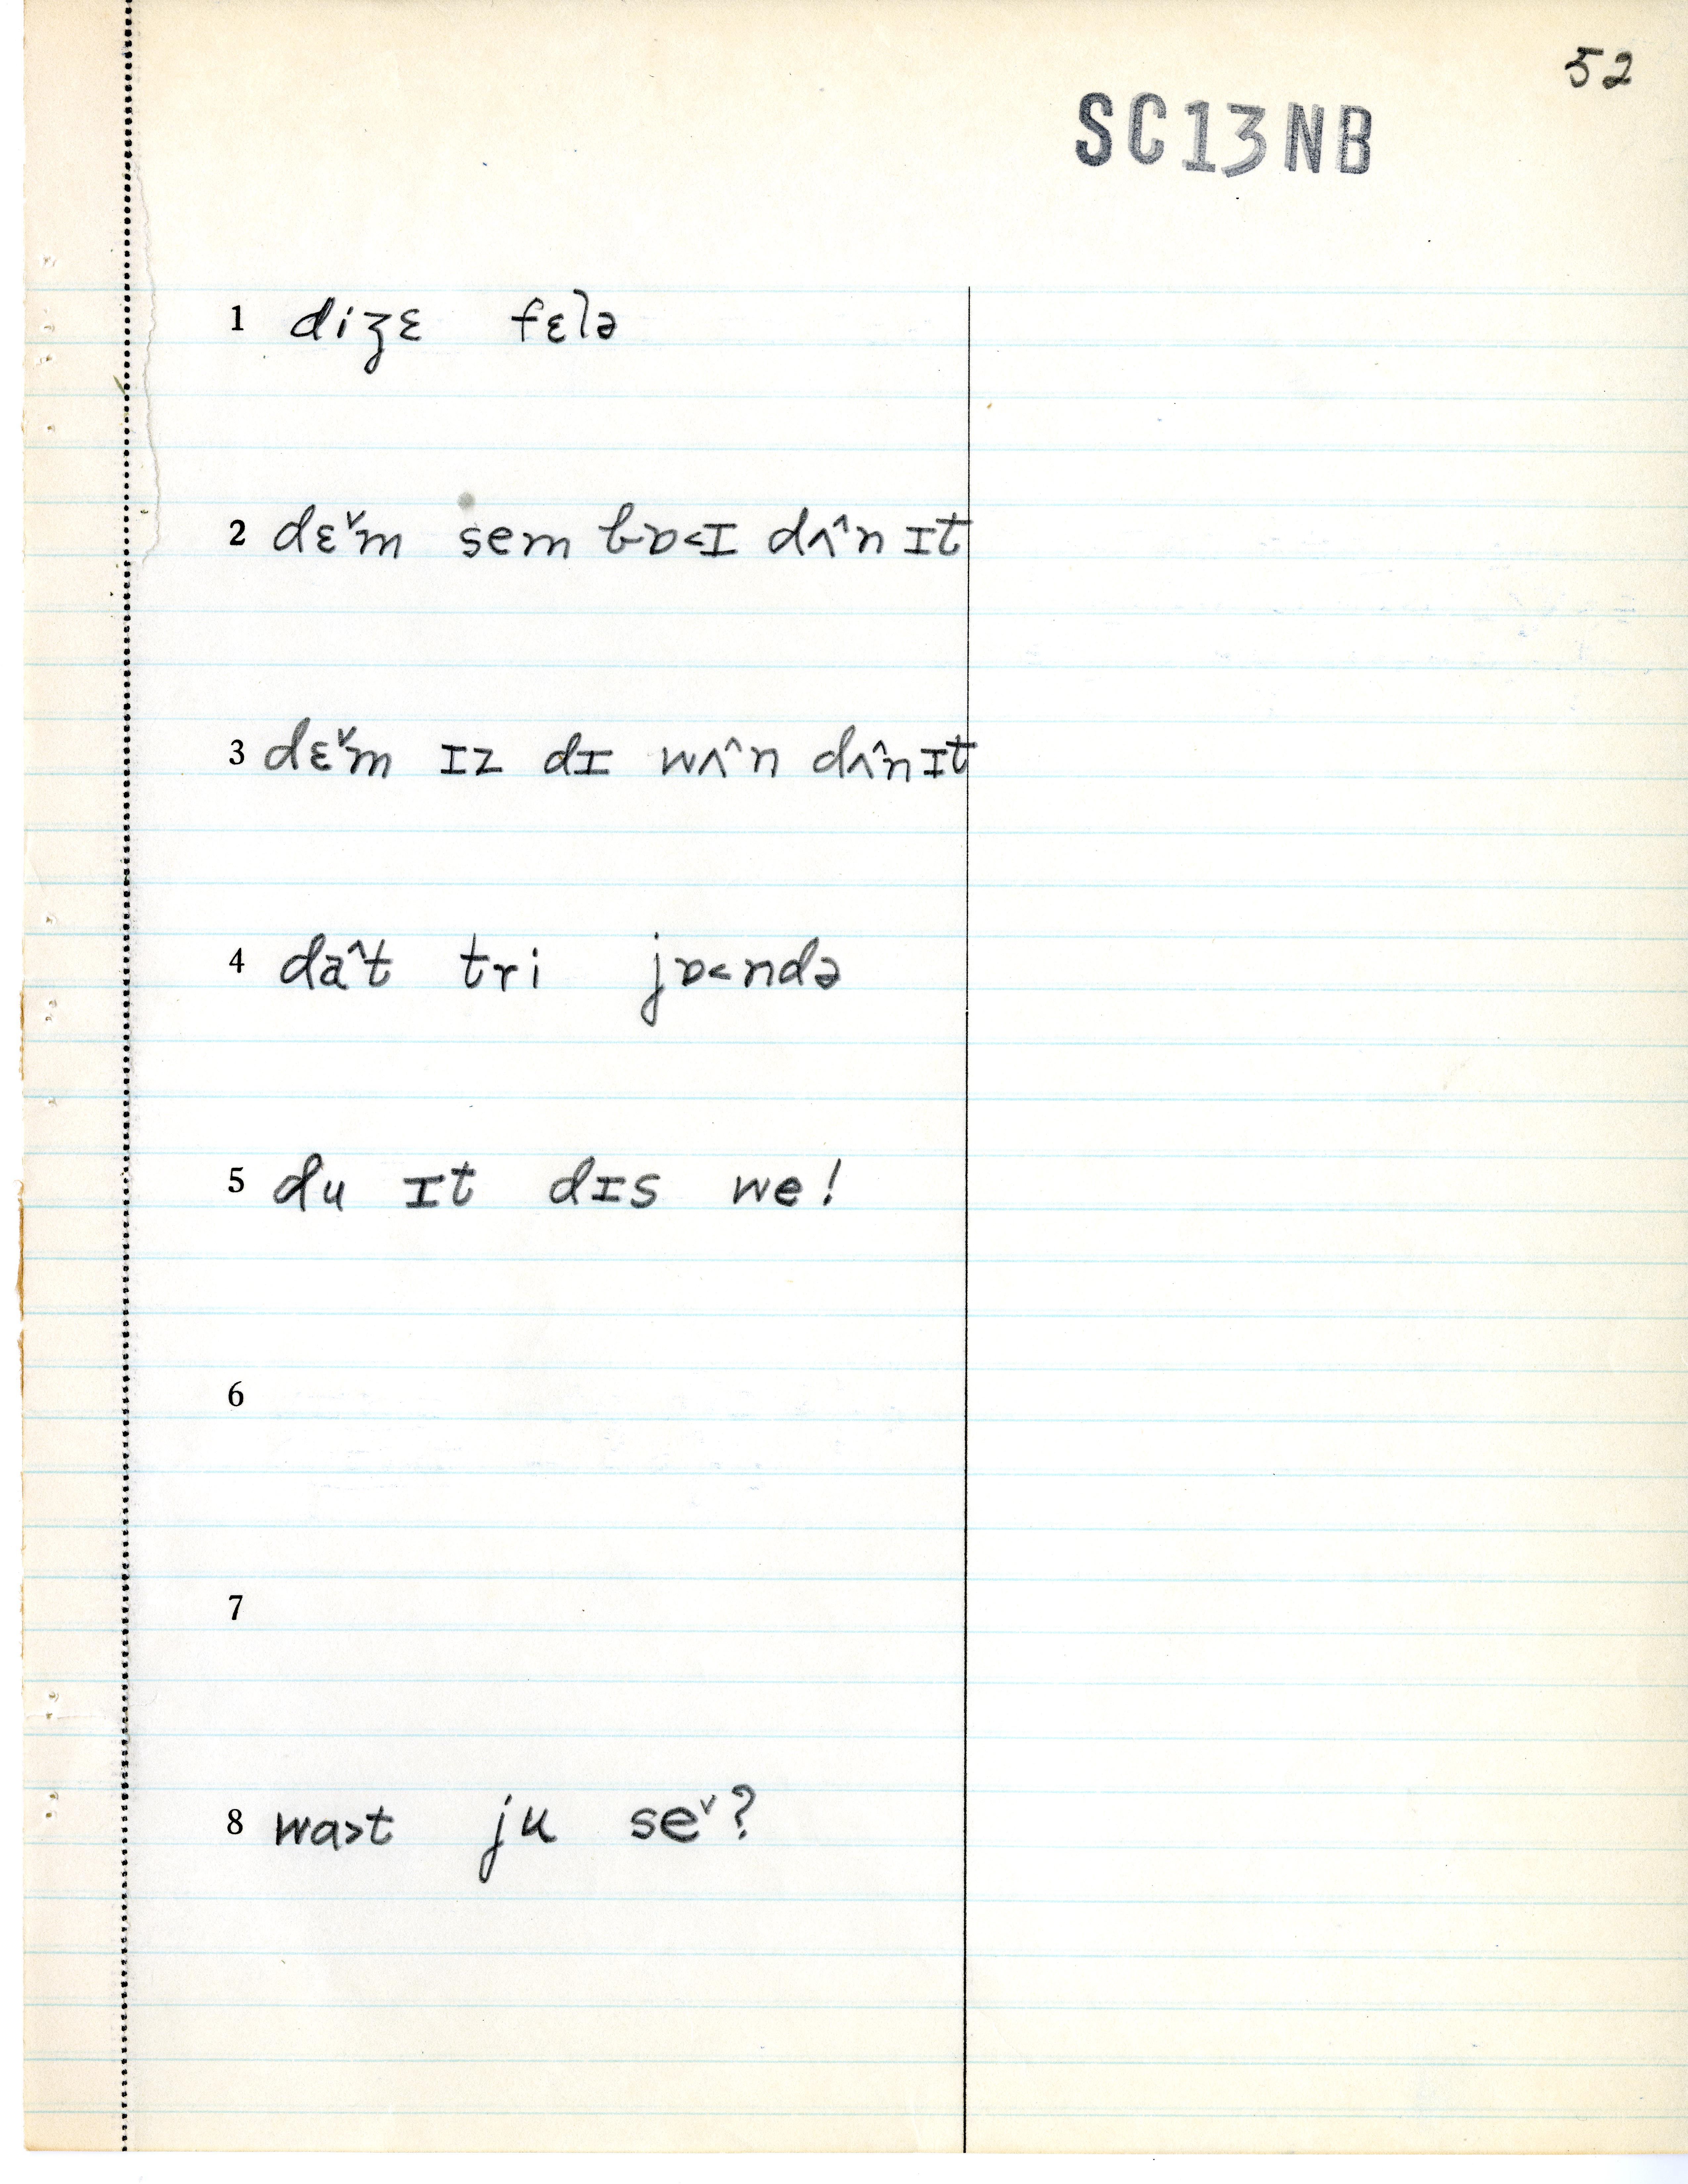 52
SC13NB
1 diz̨ɛ fɛlə
2 dɛˇm sem bɒ<ɪ dʌ^n ɪt
3 dɛˇm ɪz dɪ wʌ^n dʌ^n ɪt
4 da^t tri jɒ<ndə
5 du ɪt dɪs we!
6
7
8 wɑ>t ju seˇ?